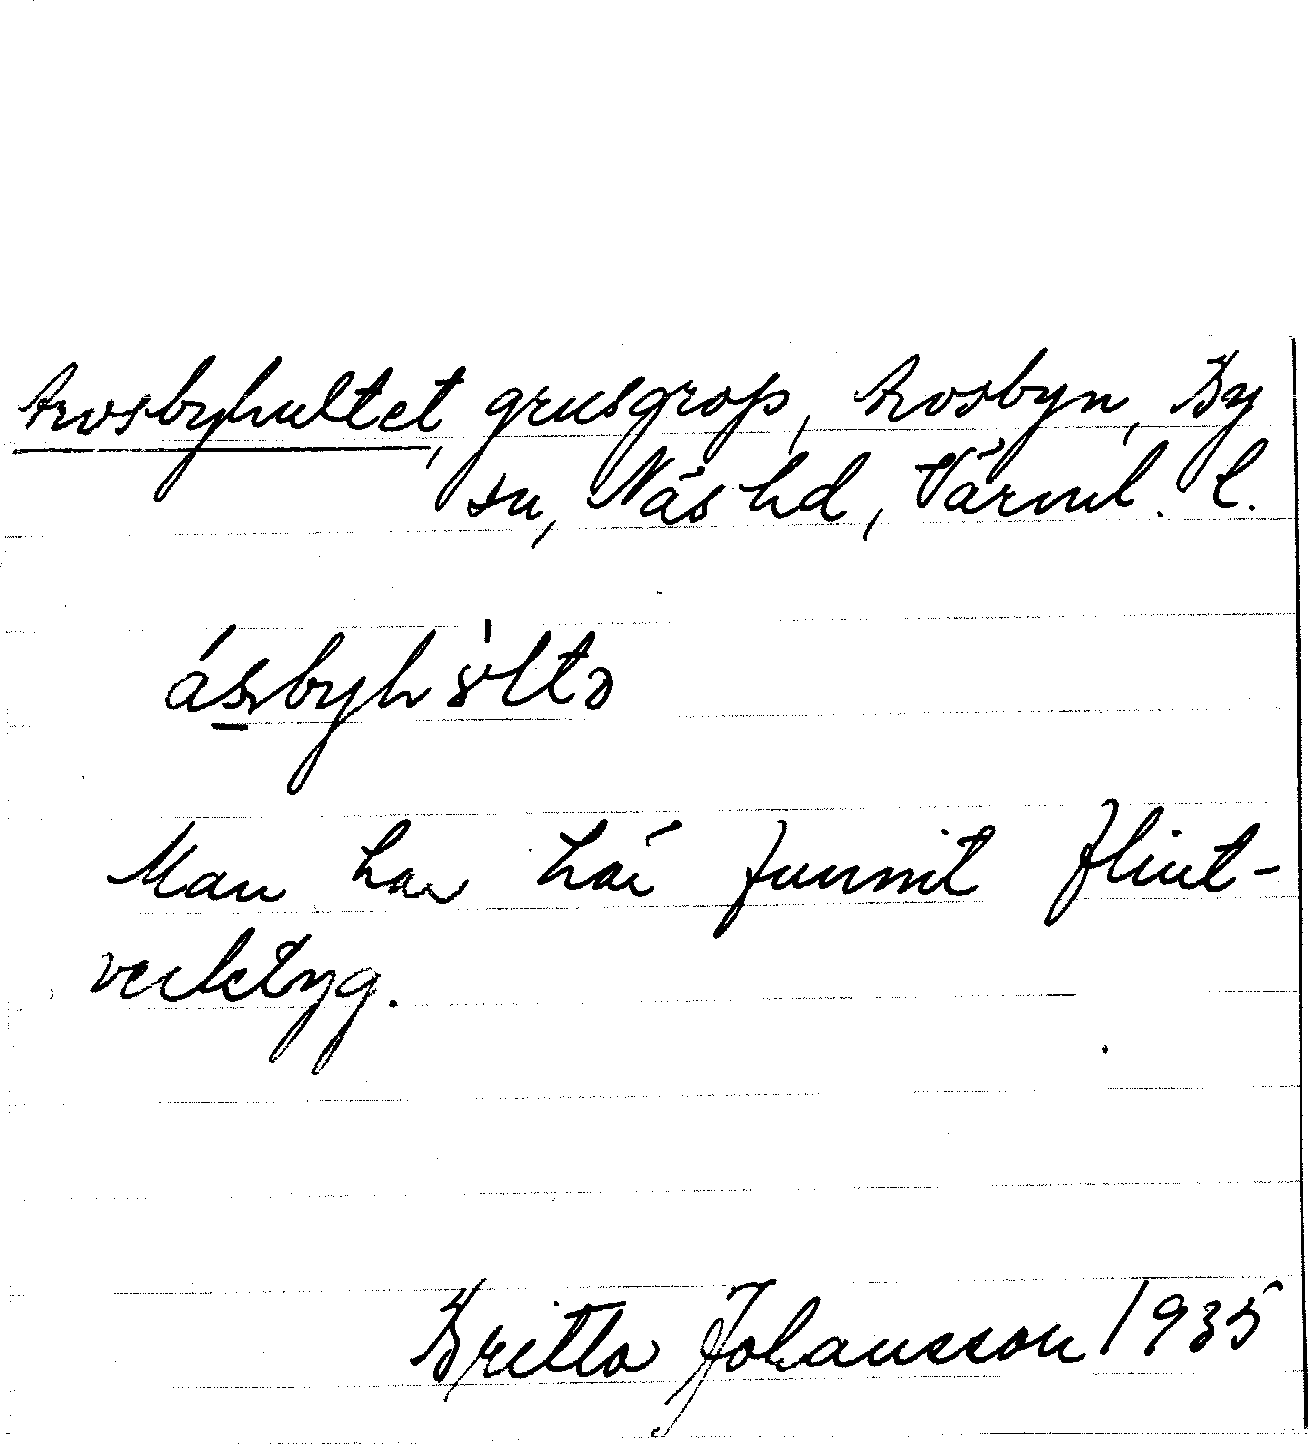 Årosbyhultet, grusgrop, Årosbyn, By
sn, Näs hd, Värml. l.
Man har här funnit flint-
verktyg.
Britta Johansson 1935